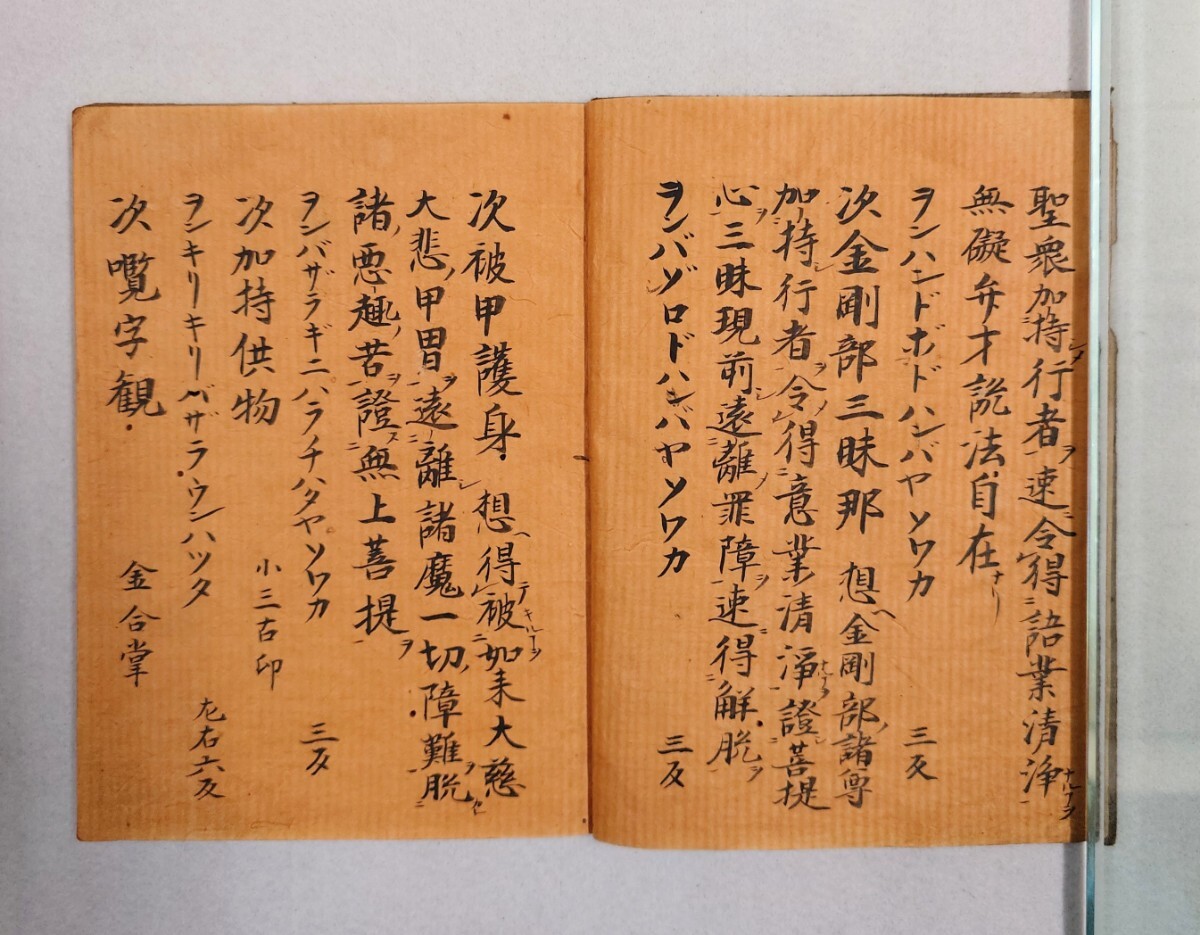 聖衆加持行者速令得語業清浄
無礙弁才説法自在
ヲンハンドボドハンバヤソワカ 三反
次金剛部三昧那 想金剛部諸尊
加持行者令得意業清浄證菩提
心三昧現前遠離罪障速得解脱
ヲンバゾロドハンバヤソワカ 三反
次被甲護身 想得被如来大慈
大悲甲冑遠離諸魔一切障難脱
諸悪趣苦證無上菩提
ヲンバザラギニハラチハタヤソワカ 三反
次加持供物 小三古印
ヲンキリキリバザラウンハツタ 左右六反
次覧字観 金合掌